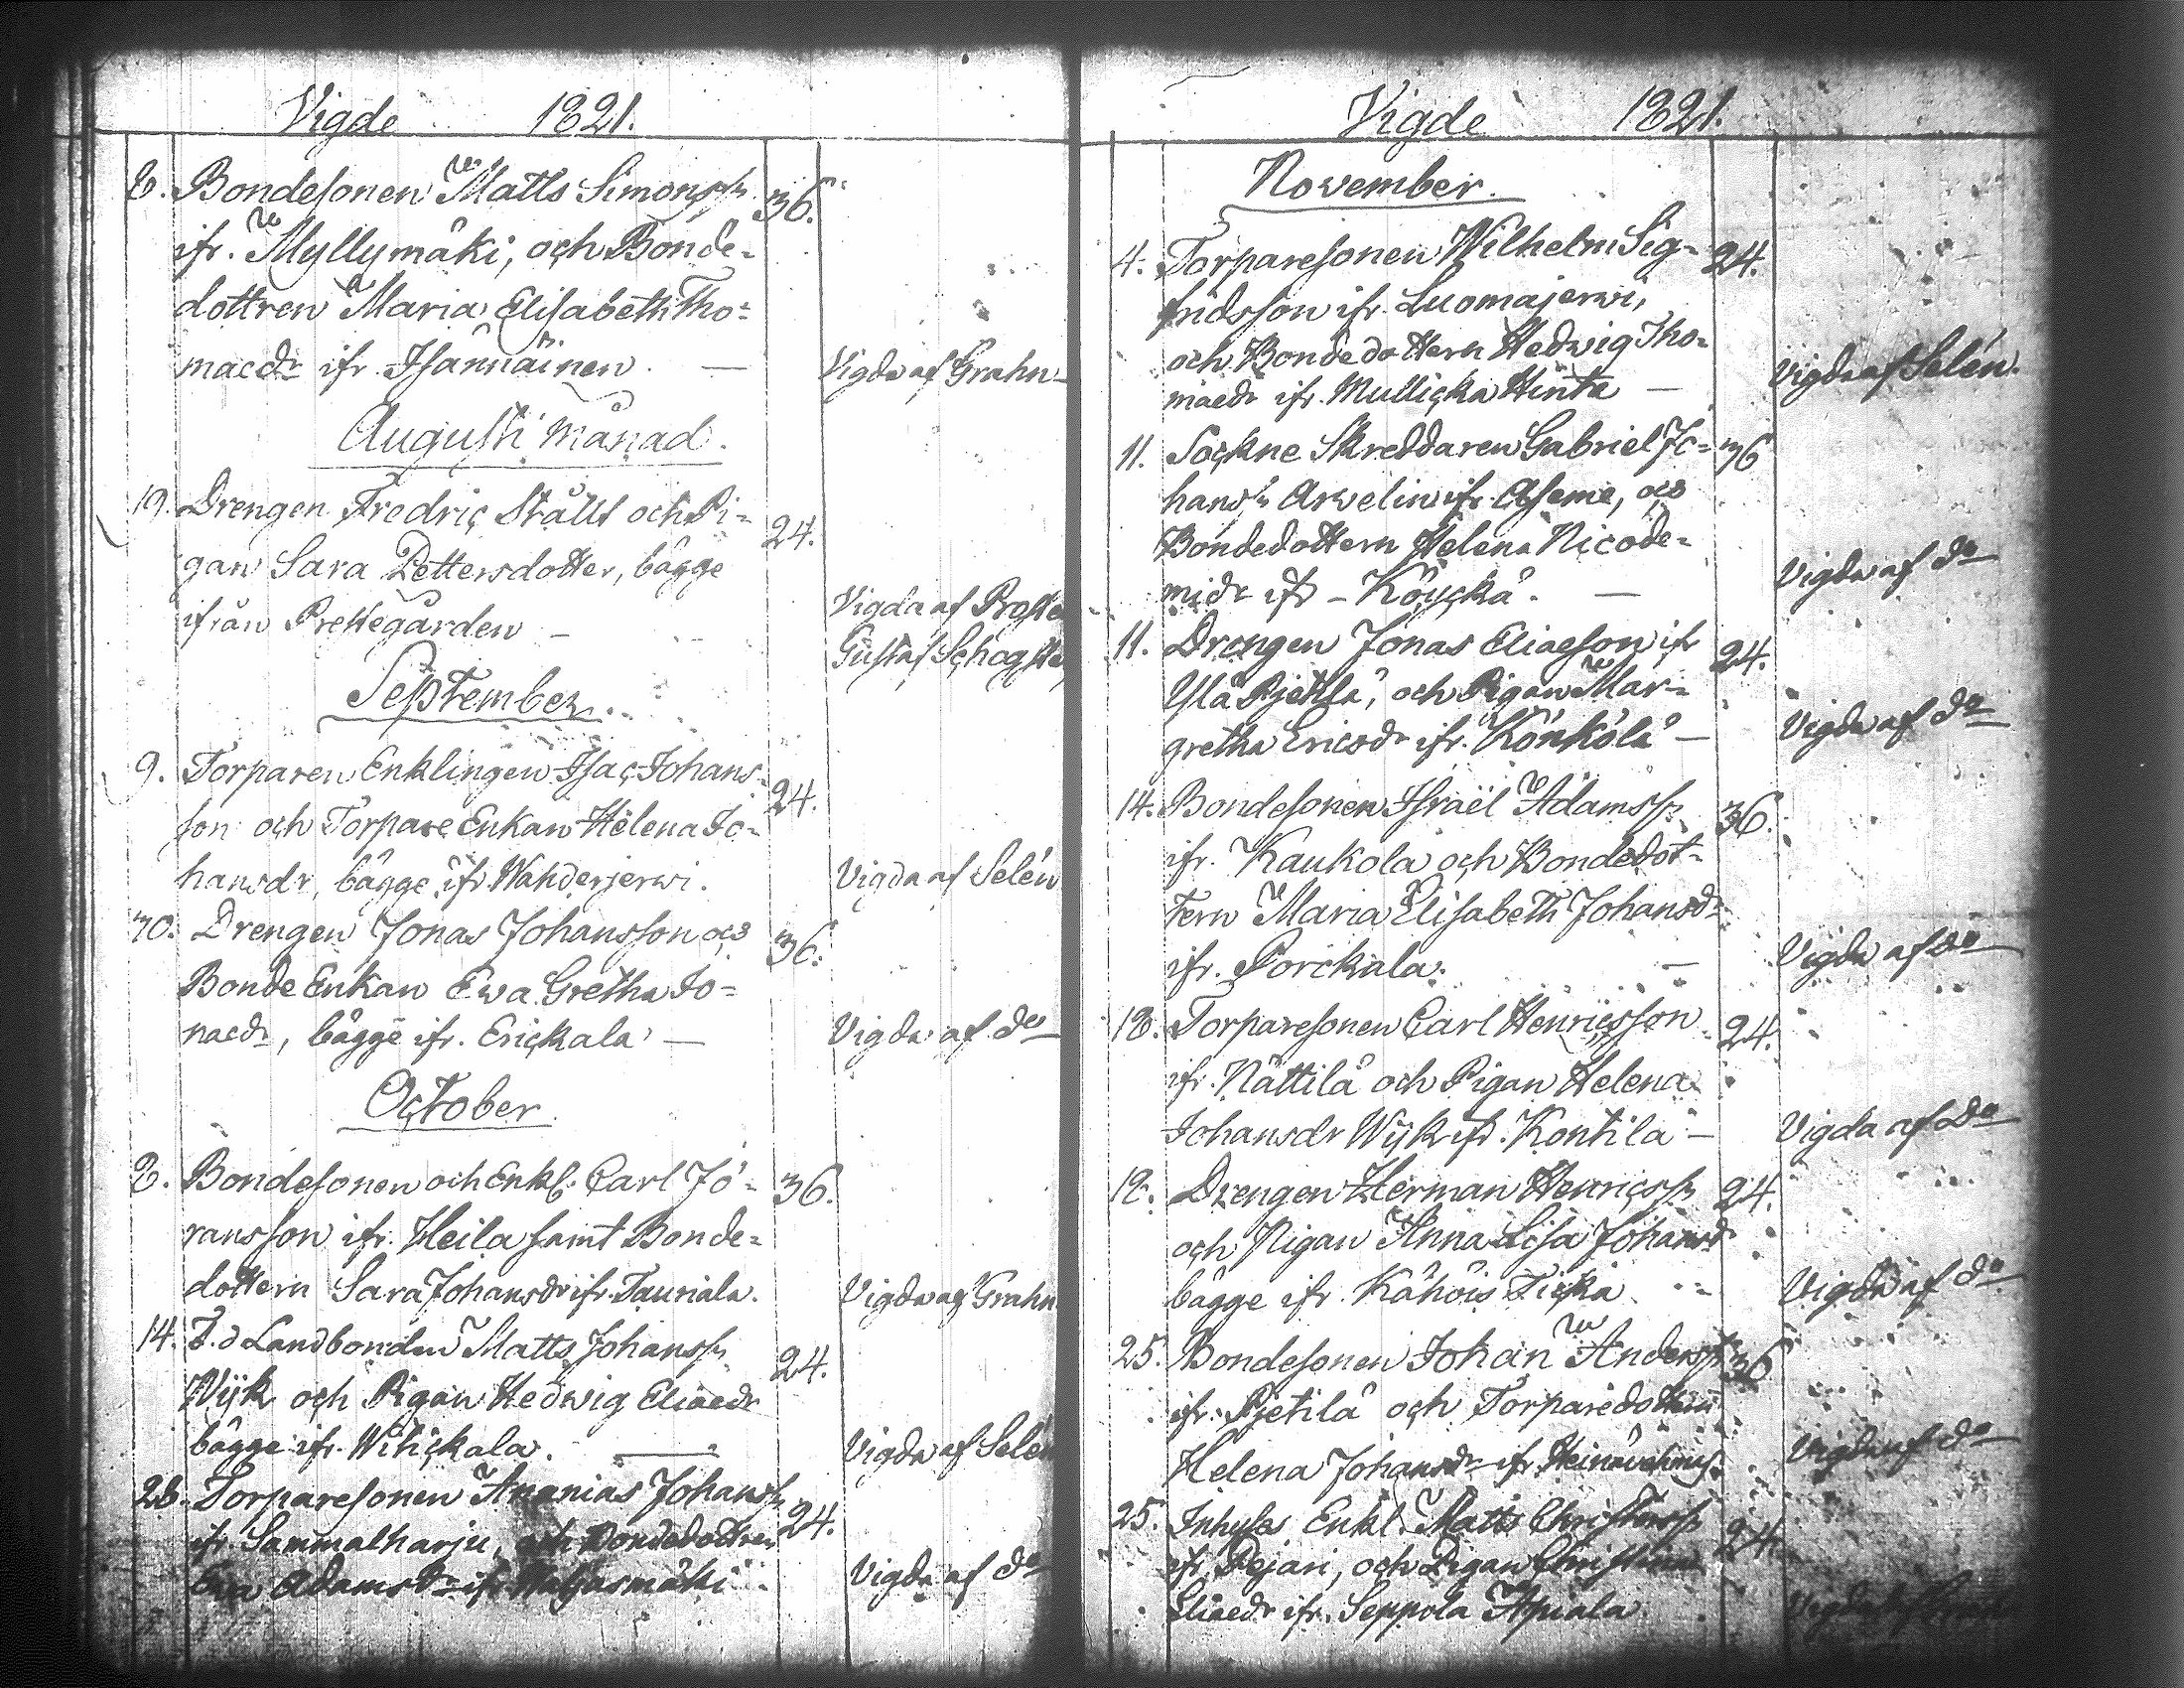 Vigde 1821.
8. Bondesonen Matts Simonss. 36.
ifr. Myllymäki, och Bonde-
dottren Maria Elisabeth Tho-
maedr ifr Isännäinen. — Vigda af Grahn
Augusti månad.
19. Drengen Fredric Stållt och Pi- 24.
gan Sara Pettersdotter, bägge
ifrån Prestegården — Vigda af Proste
Gustaf Schogste
September.
9. Torparen Enklingen Isac Johans- 24.
son och Torpare Enkan Helena Jo-
hansdr, bägge ifr Wahderjerwi. Vigda af Selén
30. Drengen Jonas Johansson och 36.
Bonde Enkan Ewa Gretha Jo-
naedr, bägge ifr. Erickala — Vigda af do
October
8. Bondesonen och Enkl. Carl Jö- 36.
ransson ifr. Heila samt Bonde-
dottern Sara Johansdr ifr. Tauriala. Vigda af Grahn
14. F.d Landbonden Matts Johanss. 24.
Wijk och Pigan Hedwig Eliaedr
bägge ifr. Wihickala. — Vigda af Selén
28. Torparesonen Ananias Johanss. 24.
ifr Sammalharju, och Bondedottren
Ewa Adamsdr ifr Hatjasmäki Vigda af do
Vigde 1821.
November.
4. Torparesonen Wilhelm Sig- 24.
fridsson ifr. Luomajerwi,
och Bondedottern Hedwig Tho-
maedr ifr. Mullicka Hinta — Vigda af Selén.
11. Sockne Skreddaren Gabriel Jo- 36
hanss. Arvelin ifr. Aseme, och
Bondedottern Helena Nicode-
midr ifr — Köyckä. — Vigda af do
11. Drengen Jonas Eliaeson ifr 24.
Ylä Pjetilä, och Pigan Mar-
gretha Ericsdr ifr. Könkölä — Vigda af do
14. Bondesonen Israël Adamss. 36.
ifr. Kaukola och Bondedot-
tern Maria Elisabeth Johansdr
ifr. Porckala. — Vigda af do
18. Torparesonen Carl Henricsson 24.
ifr. Nättilä och Pigan Helena
Johansdr Wijk ifr. Kontila — Vigda af Do
18. Drengen Herman Henricss. 24.
och Pigan Anna Lisa Johansdr
bägge ifr. Kähöis Ticka Vigda af do
25. Bondesonen Johan Anderss. 36
ifr. Pjetilä och Torparedottern
Helena Johansdr ifr. Vigda af do
25. Inhyses Enkl. Matts Christerss. 24.
ifr Pejari, och Pigan Christina
Eliaedr ifr. Seppola Apiala Vigda